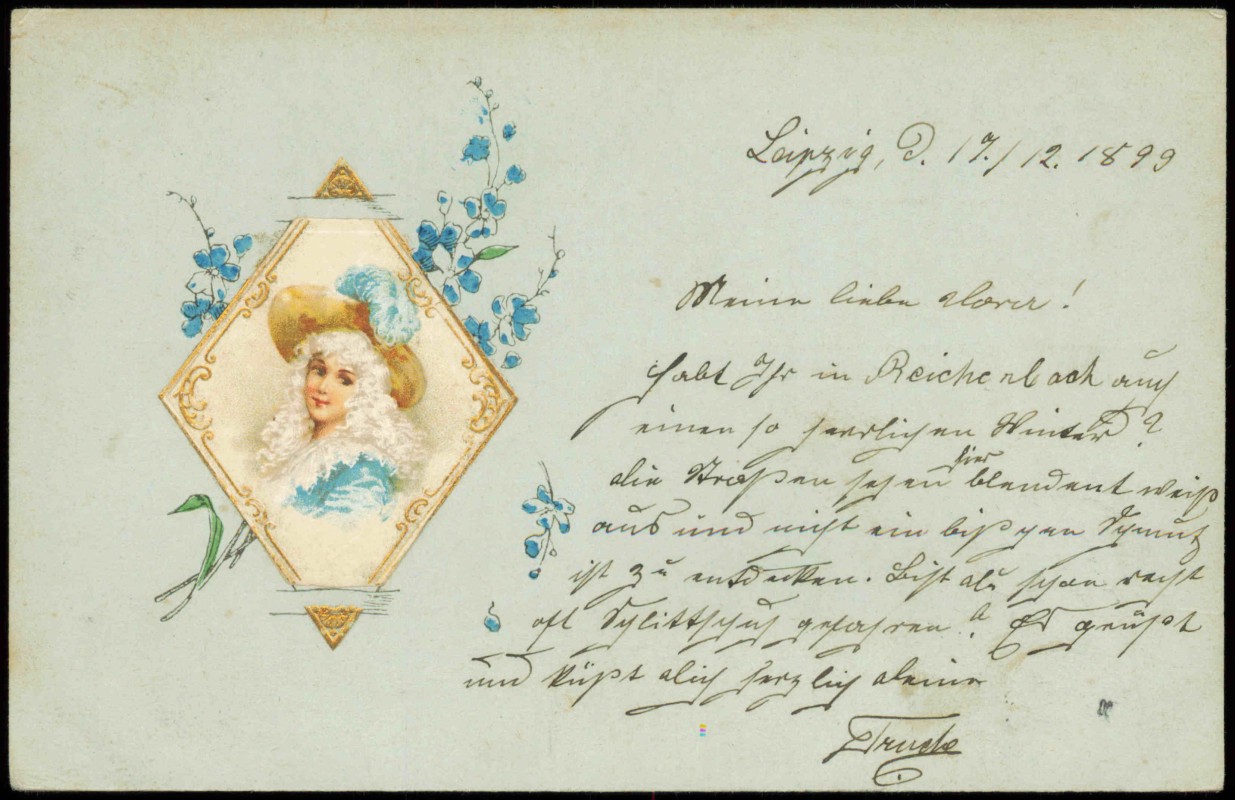 Leipzig, d. 17./12. 1899
Meine liebe Dora!
Habt Ihr in Reichenbach auch
einen so herrlichen Winter?
die Straßen sehen hier blendent weiß
aus und nicht ein bißchen Schmutz
ist zu entdecken. Bist du schon recht
oft Schlittschuh gefahren? Es grüßt
und küßt dich herzlich deine
Trude